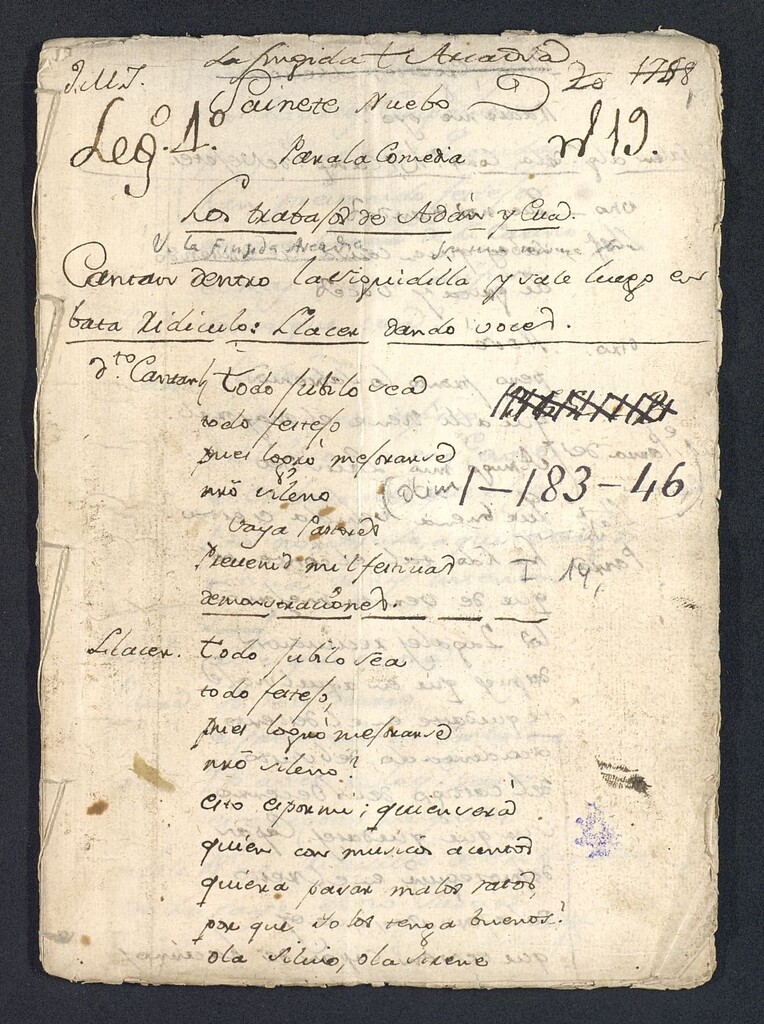 La fingida Arcadia
J.M.J.
Sainete Nuebo
1788
Leg.º 1.º
nº 19.
Para la Comedia
Los trabajos de Adán y Eva.
V. la Fingida Arcadia
Cantan dentro la siguidilla y sale luego en
bata ridiculo: Llacer dando voces.
d.tro Cantan
todo jubilo sea
todo festejo
pues logró mejorarse
nrô sileno
1-183-46
Vaya Pastores
Prevenid mil festivas
demonstraciones.
Llacer. todo jubilo sea
todo festejo,
pues logró mejorarse
nrô sileno?
esto es por mi; quien verá
quien con musicos acentos
quiera pasar malos ratos,
por que yo los tenga buenos?
ola Silvio, ola Sirene